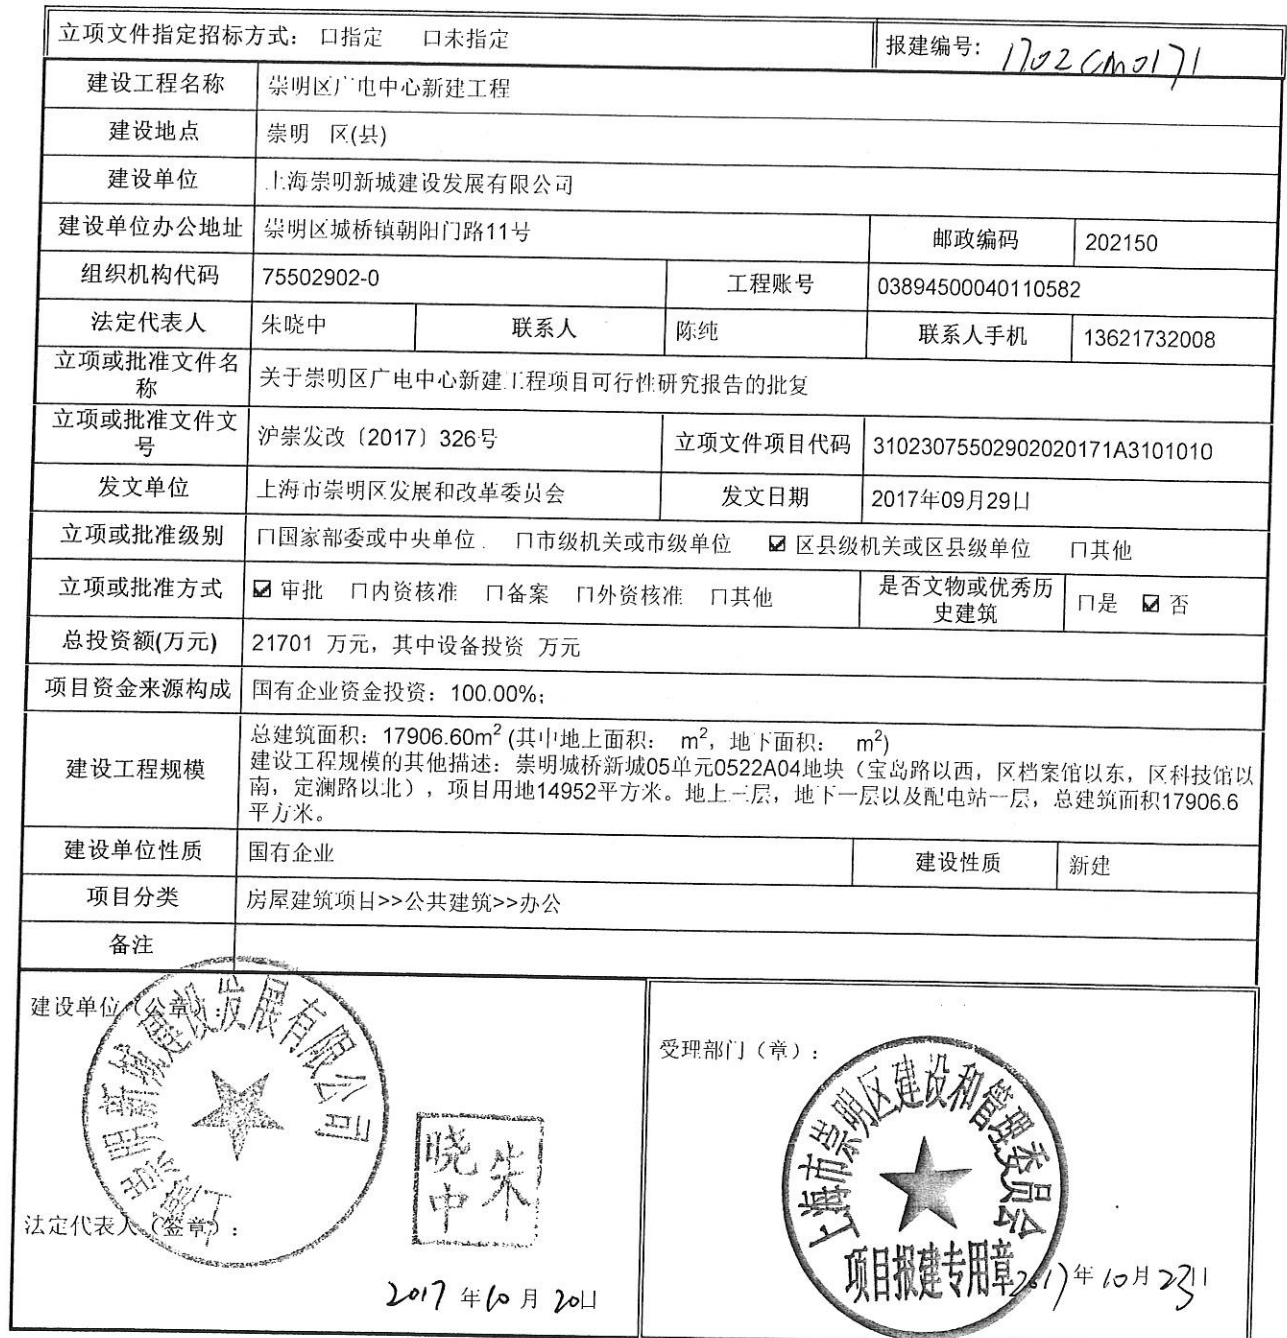 立项文件指定招标方式：口指定 口未指定 报建编号：1702CM0171
建设工程名称 崇明区广电中心新建工程
建设地点 崇明 区(县)
建设单位 上海崇明新城建设发展有限公司
建设单位办公地址 崇明区城桥镇朝阳门路11号 邮政编码 202150
组织机构代码 75502902-0 工程账号 03894500040110582
法定代表人 朱晓中 联系人 陈纯 联系人手机 13621732008
立项或批准文件名
称 关于崇明区广电中心新建工程项目可行性研究报告的批复
立项或批准文件文
号 沪崇发改〔2017〕326号 立项文件项目代码 31023075502902020171A3101010
发文单位 上海市崇明区发展和改革委员会 发文日期 2017年09月29日
立项或批准级别 口国家部委或中央单位 口市级机关或市级单位 ☑ 区县级机关或区县级单位 口其他
立项或批准方式 ☑ 审批 口内资核准 口备案 口外资核准 口其他 是否文物或优秀历
史建筑 口是 ☑ 否
总投资额(万元) 21701 万元，其中设备投资 万元
项目资金来源构成 国有企业资金投资：100.00%;
建设工程规模 总建筑面积：17906.60m² (其中地上面积： m²，地下面积： m²)
建设工程规模的其他描述：崇明城桥新城05单元0522A04地块（宝岛路以西，区档案馆以东，区科技馆以
南，定澜路以北），项目用地14952平方米。地上三层，地下一层以及配电站一层，总建筑面积17906.6
平方米。
建设单位性质 国有企业 建设性质 新建
项目分类 房屋建筑项目>>公共建筑>>办公
备注
建设单位（公章）：
上海崇明新城建设发展有限公司
朱晓中
法定代表人（签章）：
2017 年 10 月 20日
受理部门（章）：
上海市崇明区建设和管理委员会
项目报建专用章
2017 年 10 月 23日